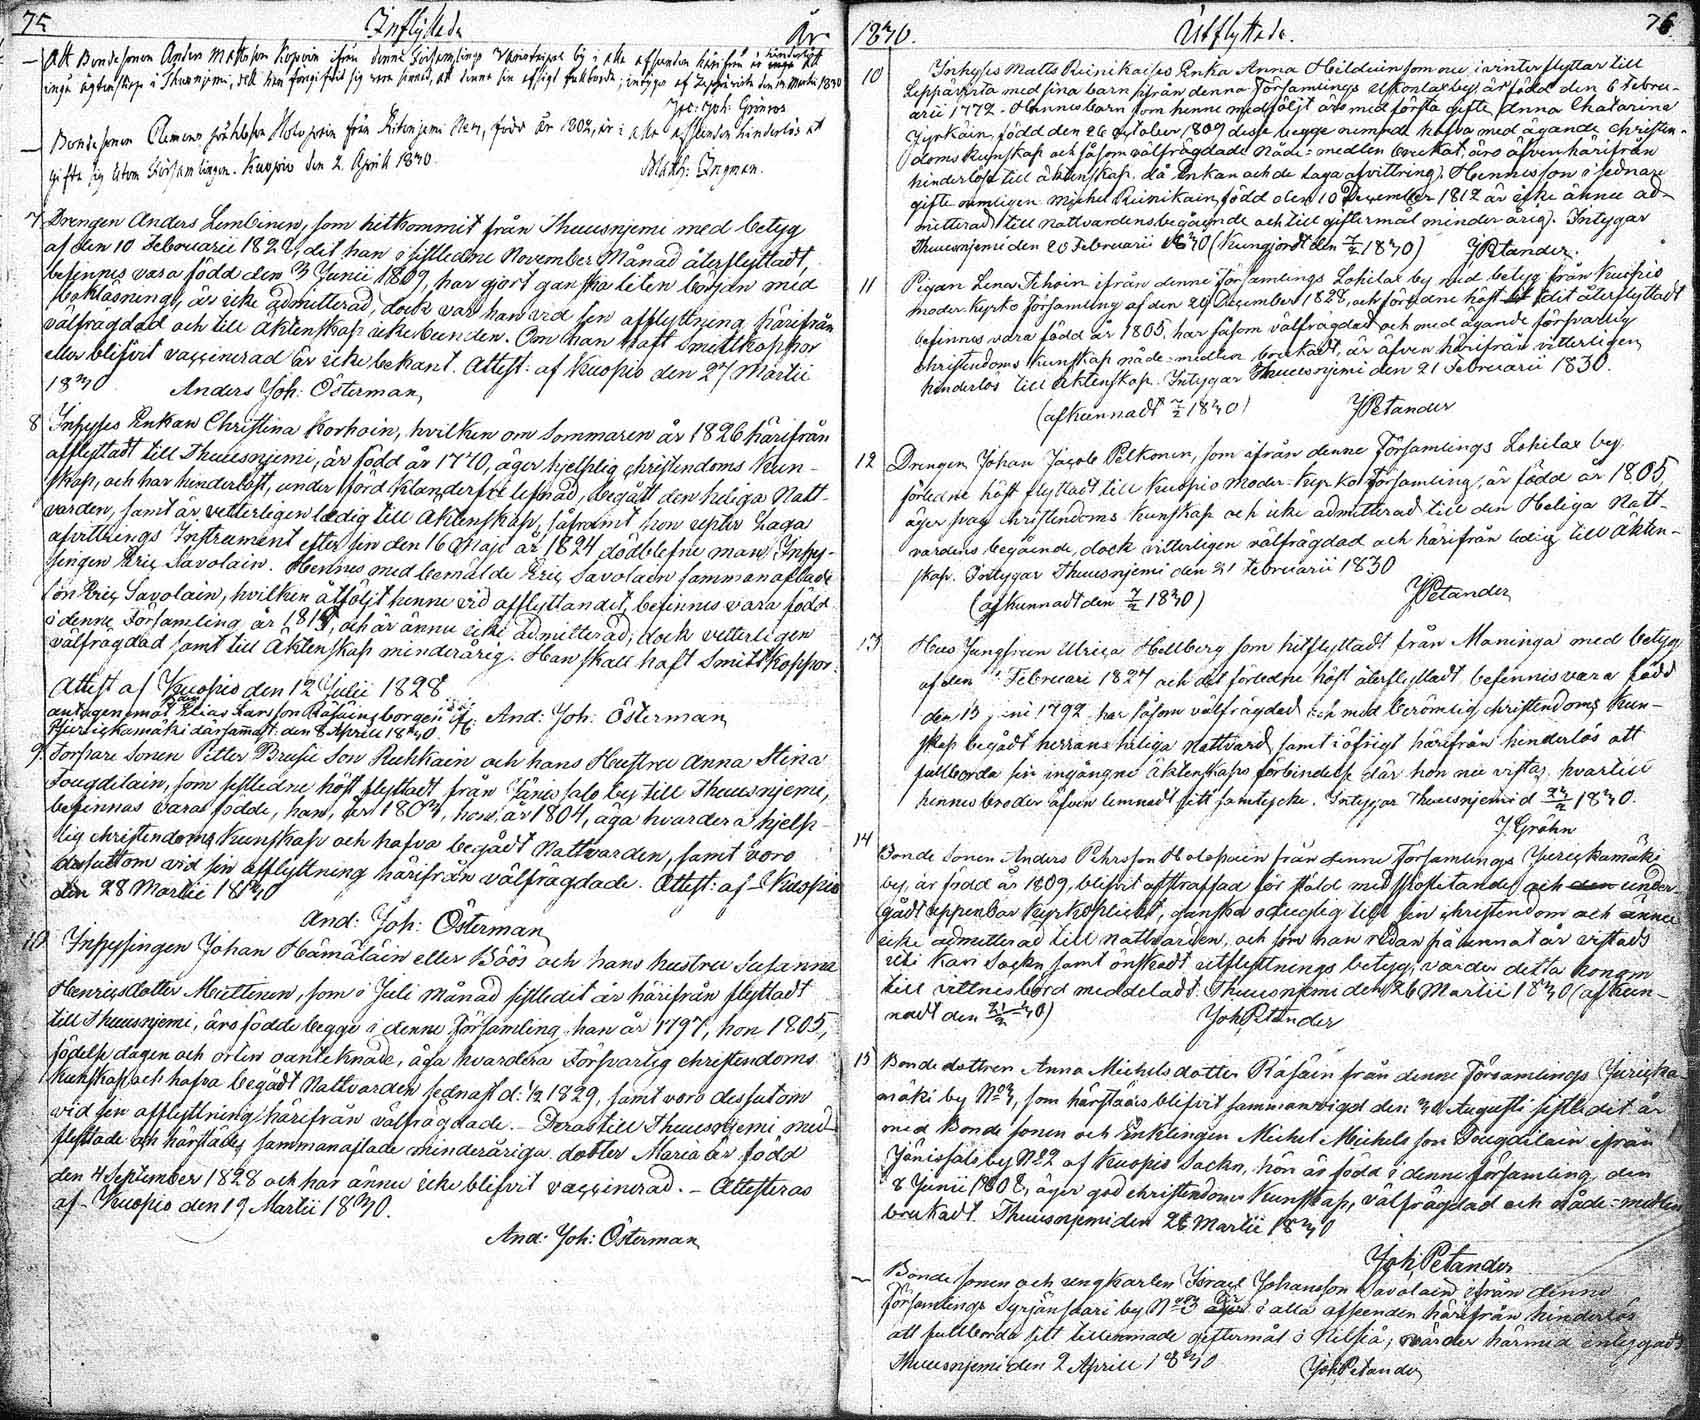 75 Inflyttade År
Att Bondesonen Anders Mattsson ifrån denna Församlings by i alla afseenden härifrån är hinderlös att
ingå ägtenskap i Thuusnjemi, dett han föregifvit sig vara sinnad, at denna sin afsigt fullborda; intygas af Leppävirta den Martii 1830
Joh: Grönros
Bondesonen Clemens Holopain från Ritonjemi N:o 4, född år 1802, är i alla afseenden hinderlös at
gifta sig utom Församlingen. Kuopio den 2 April 1830. Math: Ingman.
7 Drengen Anders Lembinen, som hitkommit från Thuusnjemi med betyg
af den 10 Februarii 1828, det han i sistledne November Månad återflyttadt,
befinnes vara född den 3 Junii 1809, har gjort ganska liten början med
bokläsning, är icke admitterad, dock var han vid sin afflyttning härifrån
välfrägdad och till äktenskap icke bunden. Om han haft Smittkoppor
eller blifvit vaccinerad är icke bekant. Attest: af Kuopio den 27 Martii
1830. Anders Joh: Österman
8 Inhyses Enkan Christina Korhoin, hvilken om Sommaren år 1826 härifrån
afflyttadt till Thuusnjemi, är född år 1770, äger hjelplig christendoms Kun-
skap, och har hinderlöst, under förd klanderfri lefnad, begått den heliga Natt-
varden, samt är vetterligen ledig till Äktenskap, såframt hon upter Laga
afvittrings Instrument efter sin den 16 Maji år 1824 dödblefne man, Inhy-
singen Eric Savolain. Hennes med bemälde Eric Savolain sammanaflade
son Eric Savolain, hvilken åtföljt henne vid afflyttandet, befinnes vara född
i denne Församling år 1813, och är ännu icke admitterad, dock vetterligen
välfrägdad samt till Äktenskap minderårig. Han skall haft Smittkoppor.
Attest af Kuopio den 12 Julii 1828
antagen mot Elias Larsson Räsäins borgen And: Joh: Österman
Jurickamäki därsammast: den 8 Aprill 1830.
9. Torpare Sonen Petter Brusii Son Ruhkain och hans Hustru Anna Stina
Tougdilain, som sistledne höst flyttadt från Jänissalo by till Thuusnjemi,
befinnas vara födde, han, år 1803, hon, år 1804, äga hvardera hjelp-
lig christendoms Kunskap och hafva begådt Nattvarden, samt voro
dessuttom vid sin afflyttning härifrån välfrägdade. Attest: af Kuopio
den 28 Martii 1830
And: Joh: Österman
10 Inhysingen Johan Hämäläin eller Böös och hans hustru Susanna
Henricsdotter Miettinen, som i Juli månad sistledit år härifrån flyttadt
till Thuusnjemi, äro födde begge i denne Församling, han år 1797, hon 1805,
födelse dagen och orten oantecknade, äga hvardera Försvarlig christendoms
kunskap och hafva begådt Nattvarden sednast d: 1/2 1829, samt voro dessutom
vid sin afflyttning härifrån välfrägdade. Deras till Thuusnjemi med-
flyttade och härstädes sammanaflade minderåriga dotter Maria är född
den 4 September 1828 och har ännu icke blifvit vaccinerad. – Attesteras
af Kuopio den 19 Martii 1830.
And: Joh: Österman
1830. Utflyttade. 76
10 Inhyses Matts Reinikaises Enka Anna Hilduin som nu i vinter flyttar till
Leppävirta med sina barn ifrån denna Församlings by, är född den 6 Febru-
arii 1772. Hennes barn som henne medföljt äro med första gifte Anna Chatarina
Jyrkäin, född den 26 October 1809 desse begge nämnde hafva med ägande Christen-
doms kunskap och såsom välfrägdade Nåde: medlen brukat, äro äfven härifrån
hinderlöse till äktenskap, då Enkan och de Laga afvittring. Hennes son i sednare
gifte nemligen Michel Reinikain, född den 10 December 1812 är icke ännu ad-
mitterad till nattvardens begående och till giftermål minder årig. Intygar
Thuusnjemi den 20 Februarii 1830 (Kungjordt den 7/2 1830) JPetander.
11 Pigan Lena Tehoin ifrån denne Församlings Lohilax by med betyg från Kuopio
moder Kyrko Församling af den 29 December 1828, och förledne höst dit återflyttadt
befinnes vara född år 1805, har såsom välfrägdad och med ägande försvarlig
christendoms kunskap nåde: medlen brukadt, är äfven härifrån vitterligen
hinderlös till äktenskap. Intygar Thuusnjemi den 21 Februarii 1830.
(afkunnadt 7/2 1830) JPetander
12 Drengen Johan Jacob Pelkonen, som ifrån denne Församlings Lohilax by
förledne höst flyttadt till Kuopio Moder-Kyrko Församling, är född år 1805
äger svag christendoms kunskap och icke admitterad till den Heliga Natt-
vardens begående, dock vitterligen välfrägdad och härifrån ledig till äkten-
skap. Intygar Thuusnjemi den 21 Februarii 1830
(afkunnadt den 7/2 1830) JPetander
13 Hus Jungfrun Ulrica Hellberg som hitflyttadt från Maninga med betyg
af den Februari 1827 och dit förledne höst återflyttadt befinnes vara född
den 13 Juni 1792. har såsom välfrägdad och med berömlig christendoms Kun-
skap begådt herrans heliga nattvard samt i öfrigt härifrån hinderlös att
fullborda sin ingångne äktenskaps förbindelse där hon nu vistas hvartill
hennes broder äfven lemnadt sitt samtycke. Intygar Thuusnjemi d 1830.
J. Gröhn
14 Bonde Sonen Anders Pehrsson Holopain från denne Församlings Jurickamäki
by, är född år 1809, blifvit afstraffad för stöld med och under-
gådt uppenbar Kyrkoplickt, ganska oduglig till sin christendom och ännu
icke admitterad till nattvarden, och som han redan på annat år vistads
uti Kavi Sockn samt önskadt utflyttnings betyg, varder detta honom
till vittnesbörd meddeladt. Thuusnjemi den 26 Martii 1830 (afkun-
nadt den 30) JohPetander
15 Bonde dottren Anna Michelsdotter Räsäin från denne Församlings Juricka-
mäki by N:o 3, som härstädes blifvit sammanvigd den 30 Augusti sistledit år
med Bonde sonen och Enklingen Michel Michels son Tougdilain ifrån
Jänissalo by N:o 2 af Kuopio Sockn, hon är född i denne församling den
8 Junii 1808, äger god christendoms Kunskap, välfrägdad och nåde: medlen
brukadt. Thuusnjemi den 26 Martii 1830
JohPetander
Bonde sonen och ungkarlen Israel Johansson Savolain ifrån denne
Församlings Syrjänsaari by N:o 3 är i alla afseenden härifrån hinderlös
att fullborda sitt tillernnade giftermål i Nilsiä; warder härmed intygadt
Thuusnjemi den 2 Aprill 1830 JohPetander